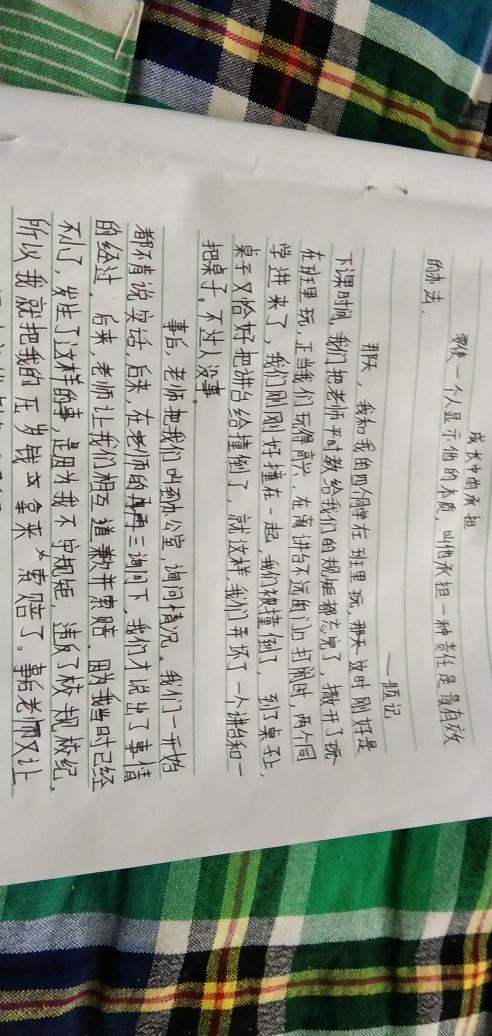 成长中的承担
要使一个人显示他的本质,叫他承担一种责任是最有效
的办法.
一题记
那天,我和我的四个同学在班里玩,那天这时刚好是
下课时间,我们把老师平时教给我们的规矩都忘完了,撒开了玩
在班里玩,正当我们玩得高兴,在离讲台不远的门口打闹时,两个同
学进来了,我们刚刚好撞在一起,我们被撞倒了,到了桌子上,
桌子又恰好把讲台给撞倒了,就这样,我们弄坏了一个讲台和一
把桌子。不过人没事。
事后,老师把我们叫到办公室,询问情况。我们一开始
都不肯说实话,后来,在老师的再三询问下,我们才说出了事情
的经过,后来,老师让我们相互道歉并索赔,因为我当时已经
不小了,发生了这样的事是因为我不守规矩,违反了校规校纪,
所以我就把我的压岁钱拿来索赔了。事后老师又让